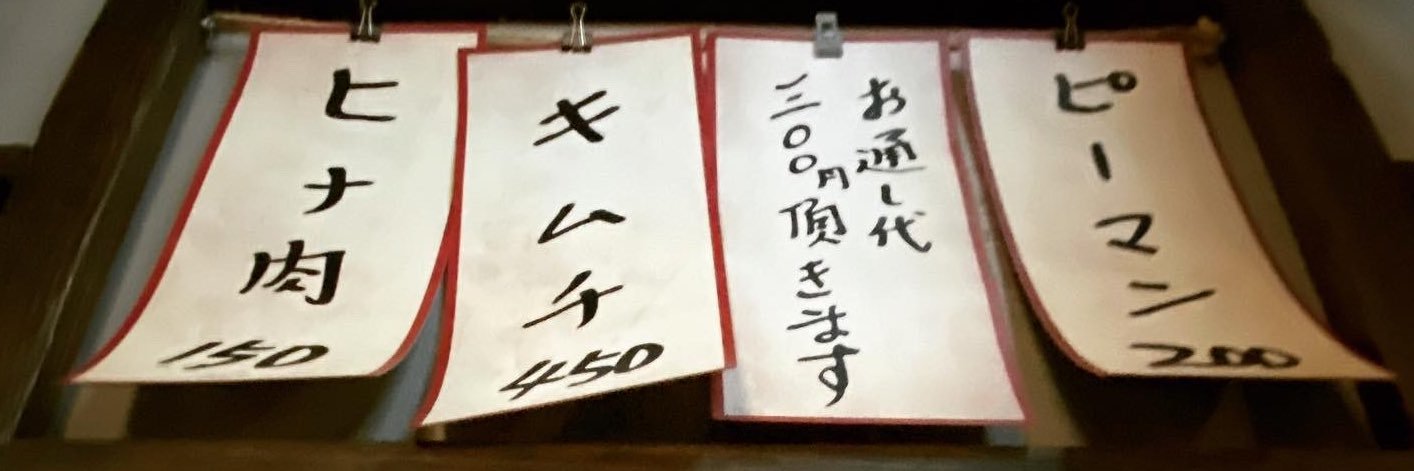 ピーマン
200
お通し代
三〇〇円頂きます
キムチ
450
ヒナ肉
150